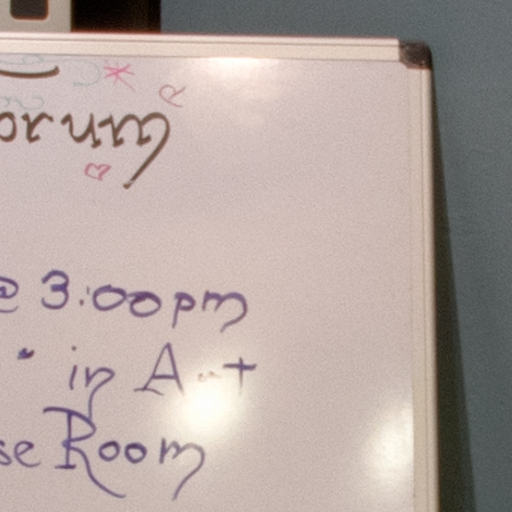 orum
@ 3:00pm
in
se Room